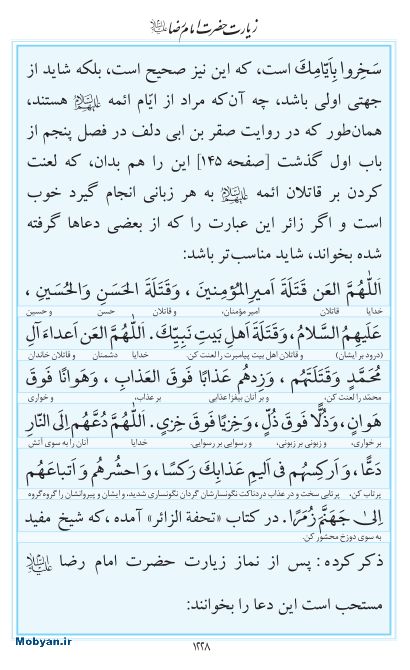 زیارت حضرت امام رضا علیه‌السلام
سَخِروا بِاَیّامِكَ است، که این نیز صحیح است، بلکه شاید از
جهتی اولی باشد، چه آن‌که مراد از ایّام ائمه علیهم‌السلام هستند،
همان‌طور که در روایت صقر بن ابی دلف در فصل پنجم از
باب اول گذشت [صفحه ۱۴۵] این را هم بدان، که لعنت
کردن بر قاتلان ائمه علیهم‌السلام به هر زبانی انجام گیرد خوب
است و اگر زائر این عبارت را که از بعضی دعاها گرفته
شده بخواند، شاید مناسب‌تر باشد:
اَللّٰهُمَّ العَن قَتَلَةَ اَمیرِ المُؤمِنینَ ، وَقَتَلَةَ الحَسَنِ وَالحُسَینِ ،
خدایا قاتلان امیر مؤمنان، و قاتلان حسن و حسین
عَلَیهِمُ السَّلامُ، وَقَتَلَةَ اَهلِ بَیتِ نَبِیِّكَ. اَللّٰهُمَّ العَن اَعداءَ آلِ
(درود بر ایشان) و قاتلان اهل بیت پیامبرت را لعنت کن. خدایا دشمنان و قاتلان خاندان
مُحَمَّدٍ وَقَتَلَتَهُم ، وَزِدهُم عَذابًا فَوقَ العَذابِ ، وَهَوانًا فَوقَ
محمّد را لعنت کن، و بر آنان بیفزا عذابی بر عذاب، و خواری
هَوانٍ، وَذُلًّا فَوقَ ذُلٍّ، وَخِزیًا فَوقَ خِزیٍ. اَللّٰهُمَّ دُعَّهُم اِلَی النّارِ
بر خواری، و زبونی بر زبونی، و رسوایی بر رسوایی. خدایا آنان را به سوی آتش
دَعًّا، وَ اَرکِسهُم فی اَلیمِ عَذابِكَ رَکسًا ، وَ احشُرهُم وَ اَتباعَهُم
پرتاب کن، پرتابی سخت و در عذاب دردناکت نگونسارشان گردان نگونساری شدید، و ایشان و پیروانشان را گروه گروه
اِلیٰ جَهَنَّمَ زُمَرًا. در کتاب «تحفة الزائر» آمده ،که شیخ مفید
به سوی دوزخ محشور کن.
ذکر کرده : پس از نماز زیارت حضرت امام رضا علیه‌السلام
مستحب است این دعا را بخوانند:
Mobyan.ir
۱۲۲۸